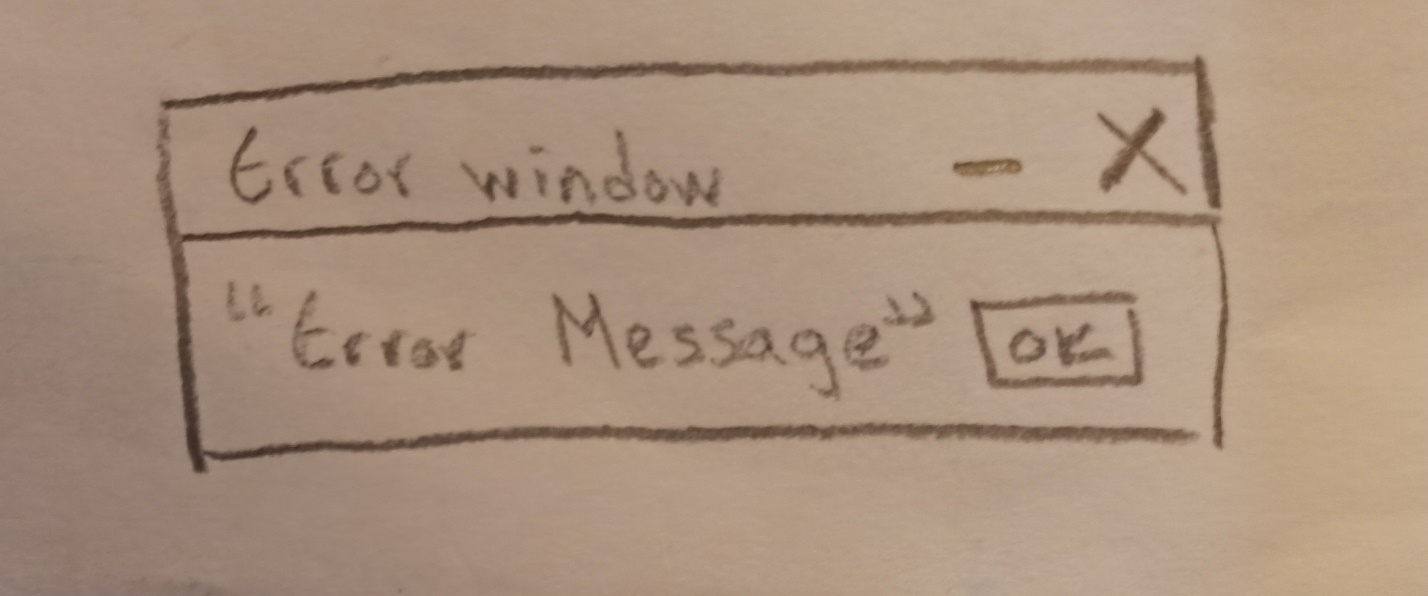 Error window - X
"Error Message" OK